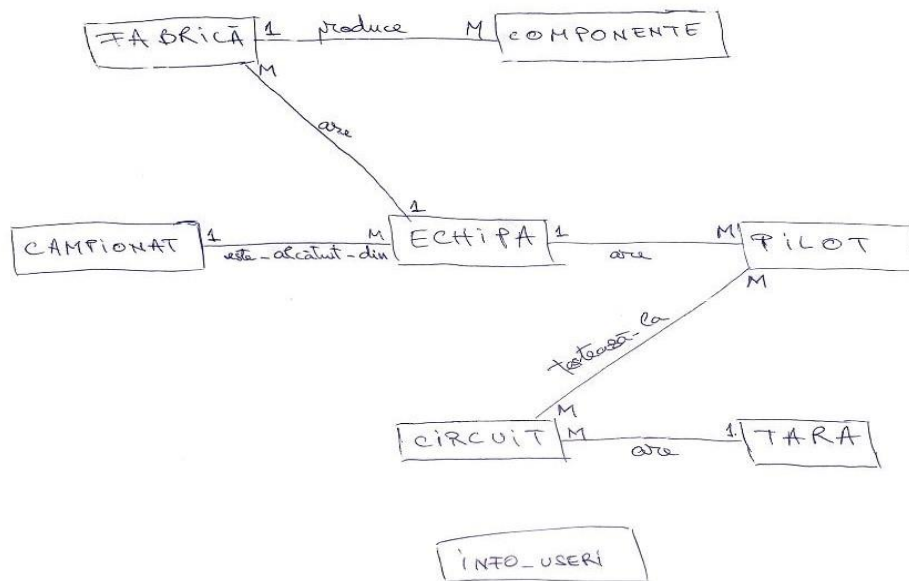 FABRICĂ 1 produce M COMPONENTE
M
are
1
CAMPIONAT 1 este_alcătuit_din M ECHIPA 1 are M PILOT
M
testează-la
M
CIRCUIT M are 1 TARA
INFO_USERI